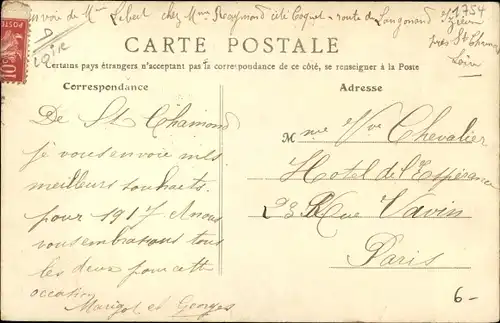 envoie de Mme Lebert chez Mme Raymond cité Coquet route de
CARTE POSTALE
Certains pays étrangers n'acceptant pas la correspondance de ce côté, se renseigner à la Poste
Correspondance
De St Chamond
je vous envoie mes
meilleurs souhaits
pour 1917 A nous
vous embrassons tous
les deux pour cette
occation
Marigot et Georges
Adresse
Mme Vve Chevalier
Hotel de l'Espérance
23 Rue Vavin
Paris
6-
10
près St
Loire